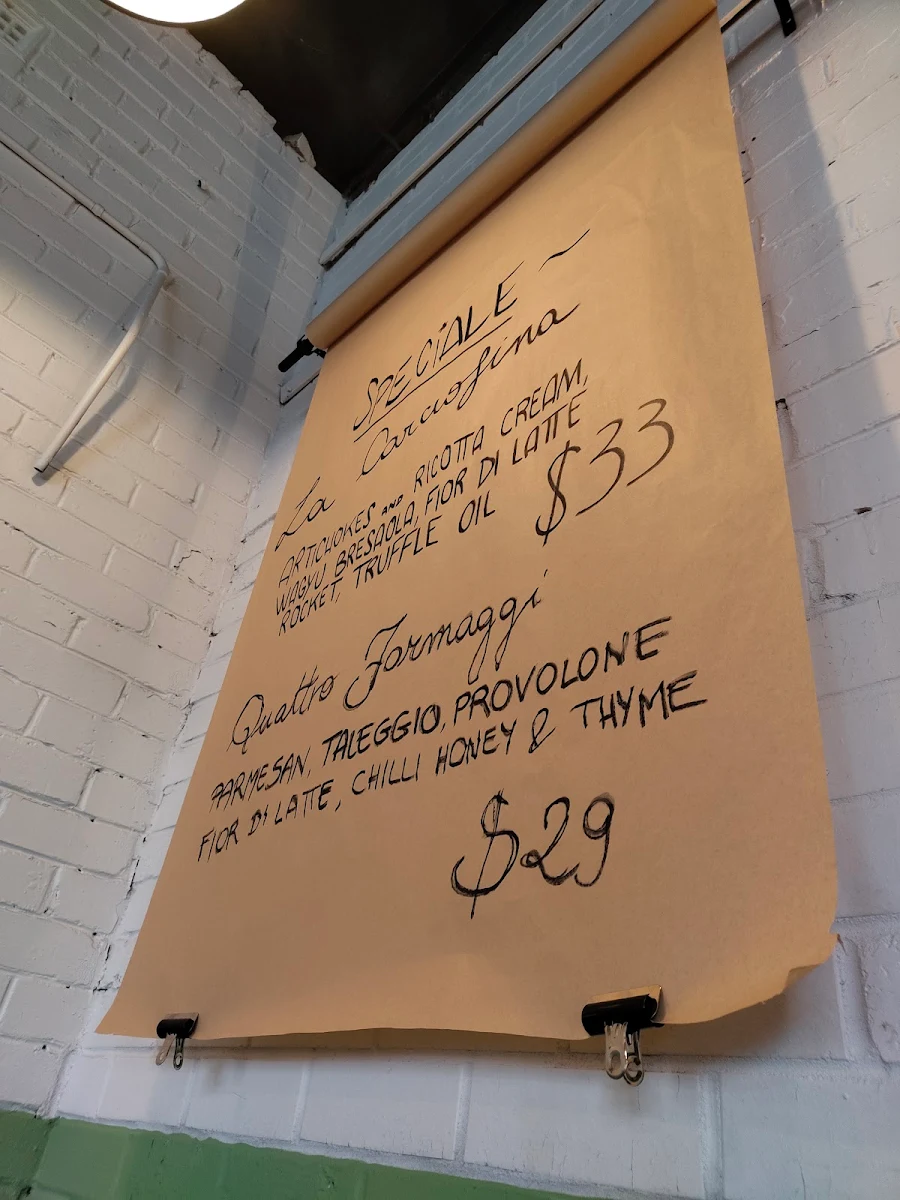 SPECIALE ~
La Carciofina
ARTICHOKES AND RICOTTA CREAM,
WAGYU BRESAOLA, FIOR DI LATTE
ROCKET, TRUFFLE OIL $33
Quattro Formaggi
PARMESAN, TALEGGIO, PROVOLONE
FIOR DI LATTE, CHILLI HONEY & THYME
$29